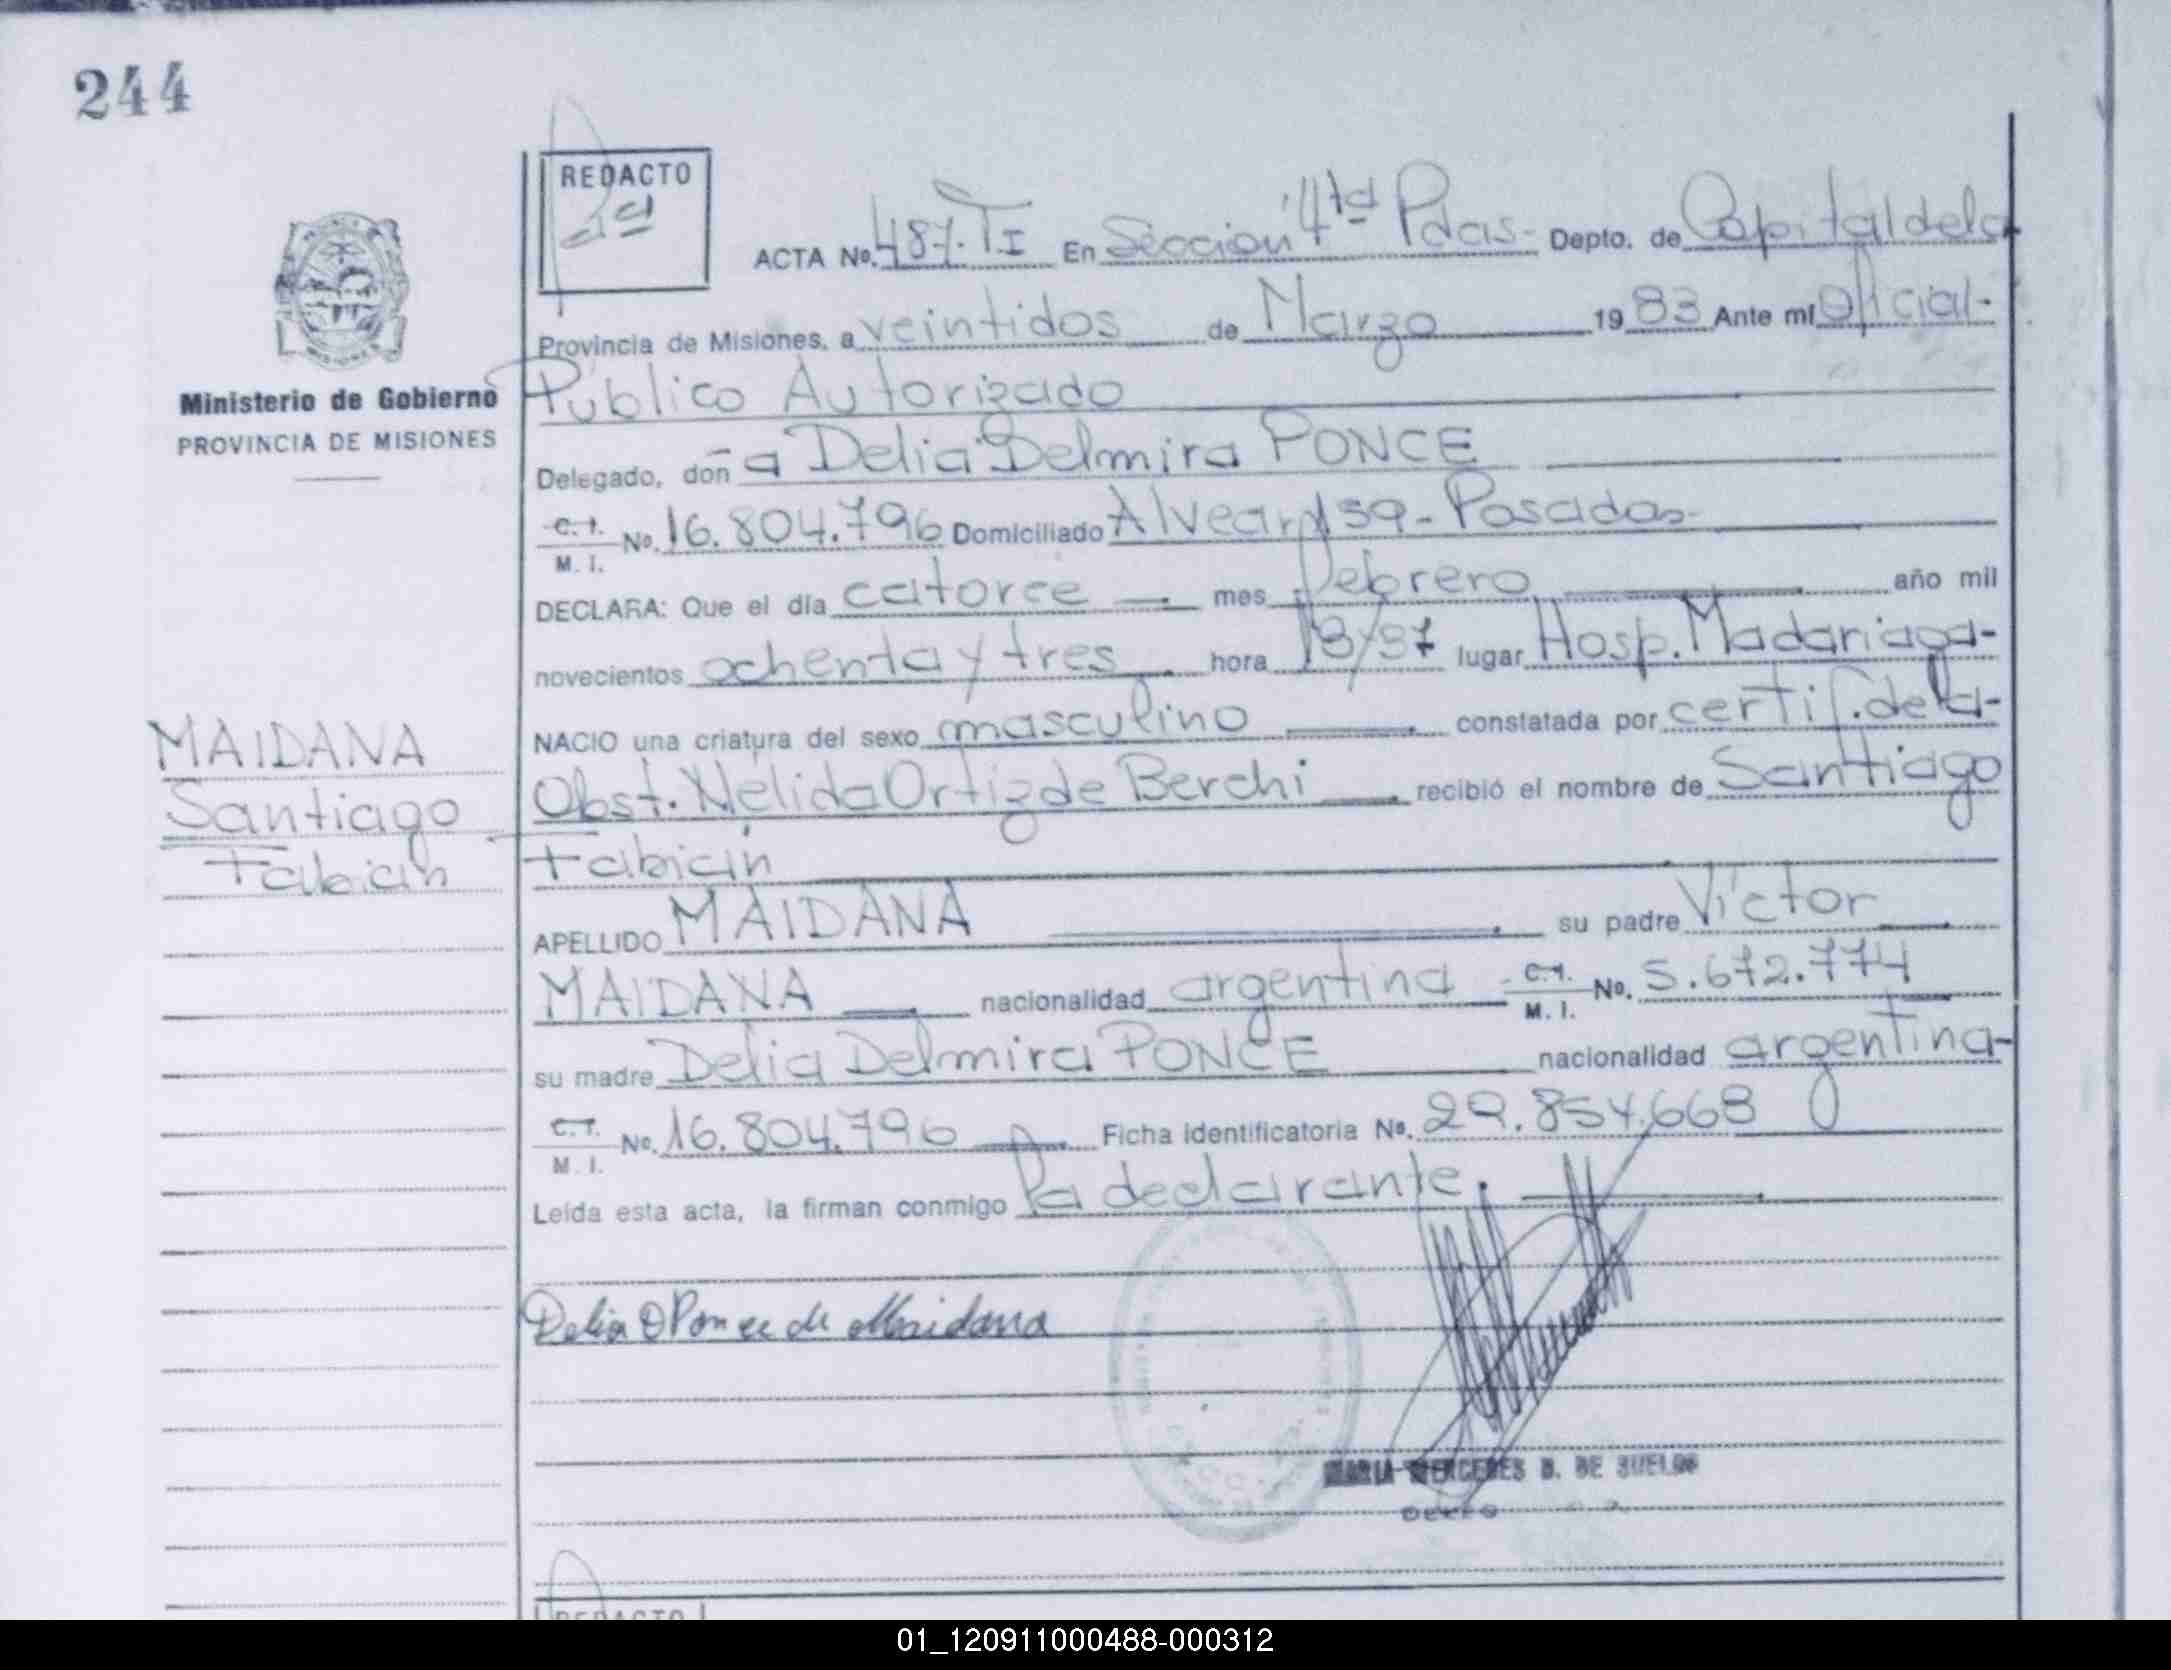 244
REDACTO
ACTA No. 487. TI En Sección 4ta Pdas- Depto. de Capital de la
Provincia de Misiones, a veintidos de Marzo 1983 Ante mí Oficial-
Ministerio de Gobierno
PROVINCIA DE MISIONES
Público Autorizado
Delegado, doña Delia Delmira PONCE
C.I. M.I. No. 16.804.796 Domiciliado Alvear Posadas-
DECLARA: Que el día catorce mes febrero año mil
novecientos ochenta y tres hora lugar Hosp. Madariaga-
NACIO una criatura del sexo masculino constatada por certif. de la-
Obst. Nélida Ortiz de Berchi recibió el nombre de Santiago
Fabián
MAIDANA
Santiago
Fabián
APELLIDO MAIDANA su padre Víctor
MAIDANA nacionalidad argentina C.I. M.I. No. 5.672.774
su madre Delia Delmira PONCE nacionalidad argentina-
C.I. M.I. No. 16.804.796 Ficha identificatoria No. 29.854.668
Leída esta acta, la firman conmigo la declarante.
Delia D Ponce de Maidana
MARIA MERCEDES B. DE SUELOS
REDACTO
01_120911000488-000312